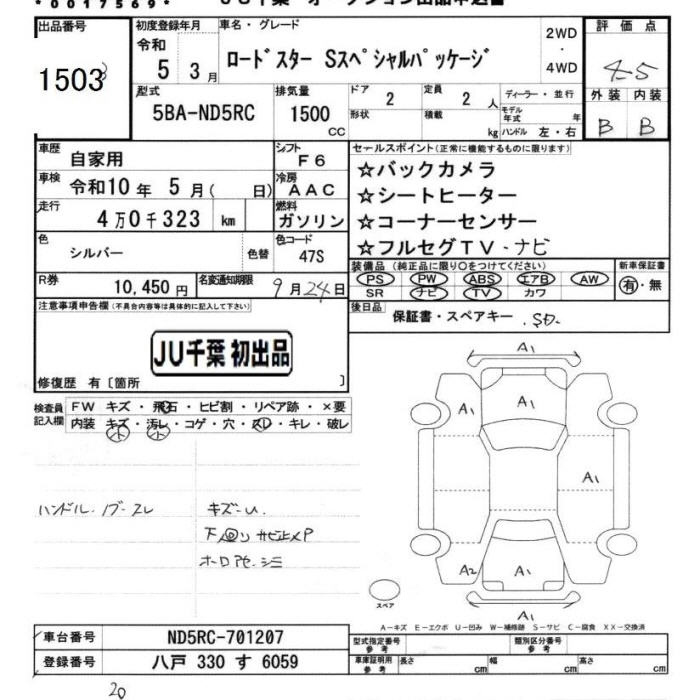 *0017569*
JU千葉 オークション出品申込書
出品番号
1503
初度登録年月
令和
5 3月
車名・グレード
ロードスター Sスペシャルパッケージ
2WD
・
4WD
評価点
4.5
外装 内装
B B
型式
5BA-ND5RC
排気量
1500
CC
ドア
2
形状
定員
2 人
積載
kg
ディーラー・並行
モデル年式 年
ハンドル 左・右
車歴
自家用
シフト
F6
車検
令和10年 5月( 日)
冷房
AAC
走行
4万0千323 km
燃料
ガソリン
色
シルバー
色替
色コード
47S
R券
10,450円
名変通知期限
9月24日
セールスポイント(正常に機能するものに限ります)
☆バックカメラ
☆シートヒーター
☆コーナーセンサー
☆フルセグTV・ナビ
装備品(純正品に限り○をつけてください)
PS PW ABS エアB AW
SR ナビ TV カワ
新車保証書
有・無
後日品
保証書・スペアキー
注意事項申告欄(不具合内容等は具体的に記入して下さい)
JU千葉 初出品
修復歴 有〔箇所 〕
検査員記入欄
FW キズ・飛石・ヒビ割・リペア跡・×要
内装 キズ・汚レ・コゲ・穴・スレ・キレ・破レ
小 小
ハンドル・ノブ・スレ
キズ-U
下回りサビ止メP
ホロアセ・シミ
A1
A1
A1
A1
A2
A1
A1
スペア
A-キズ E-エクボ U-凹み W-補修跡 S-サビ C-腐食 XX-交換済
車台番号
ND5RC-701207
登録番号
八戸 330 す 6059
型式指定番号
参考
類別区分番号
参考
車庫証明用
参考
長さ cm
幅 cm
高さ cm
20